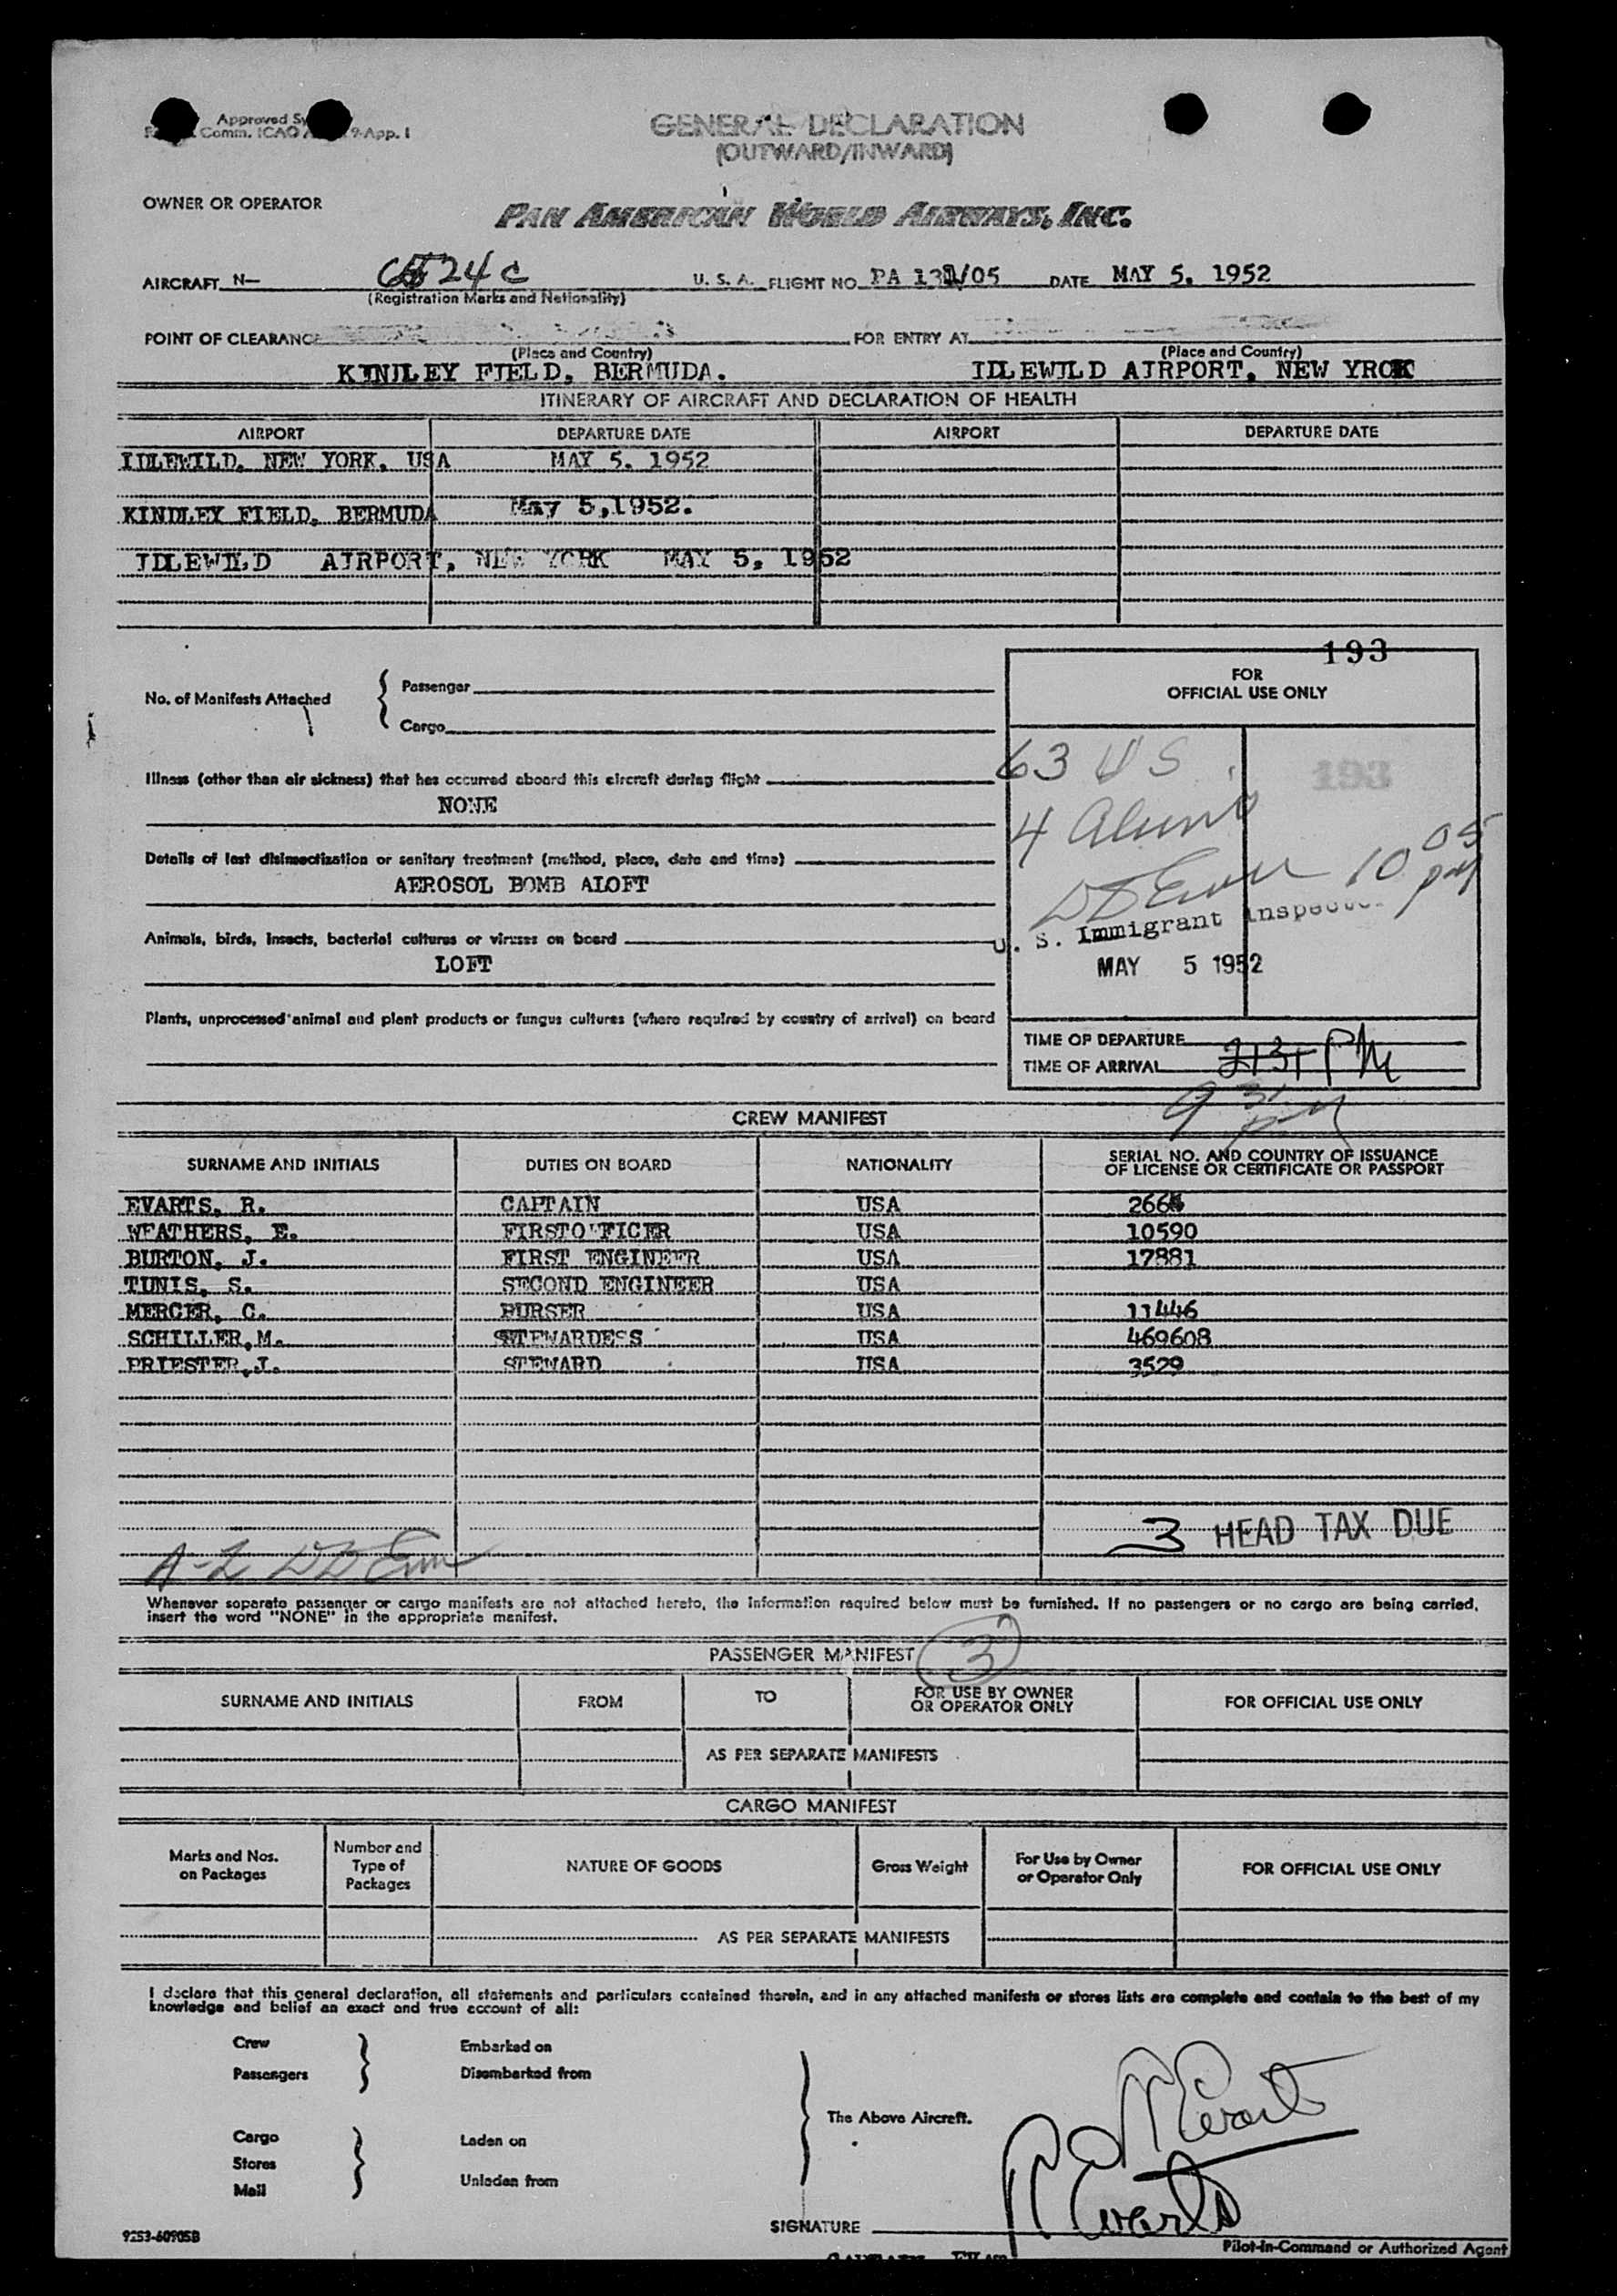 Approved
Comm. ICAO 9-App. I
GENERAL DECLARATION
(OUTWARD/INWARD)
OWNER OR OPERATOR
PAN AMERICAN WORLD AIRWAYS, INC.
AIRCRAFT N— 24C U. S. A. FLIGHT NO. PA 131/05 DATE MAY 5. 1952
(Registration Marks and Nationality)
POINT OF CLEARANCE FOR ENTRY AT
(Place and Country) (Place and Country)
KINDLEY FIELD, BERMUDA. IDLEWILD AIRPORT, NEW YROK
ITINERARY OF AIRCRAFT AND DECLARATION OF HEALTH
AIRPORT DEPARTURE DATE AIRPORT DEPARTURE DATE
IDLEWILD, NEW YORK, USA MAY 5. 1952
KINDLEY FIELD, BERMUDA May 5,1952.
IDLEWILD AIRPORT, NEW YORK MAY 5, 1952
193
FOR
OFFICIAL USE ONLY
No. of Manifests Attached
Passenger
Cargo
63 US
193
4 Aliens
Illness (other than air sickness) that has occurred aboard this aircraft during flight
NONE
Details of last disinsectization or sanitary treatment (method, place, date and time)
AEROSOL BOMB ALOFT
10 05 pm
U. S. Immigrant Inspector
MAY 5 1952
Animals, birds, insects, bacterial cultures or viruses on board
LOFT
Plants, unprocessed animal and plant products or fungus cultures (where required by country of arrival) on board
TIME OF DEPARTURE
TIME OF ARRIVAL PM
9 31 pm
CREW MANIFEST
SURNAME AND INITIALS DUTIES ON BOARD NATIONALITY SERIAL NO. AND COUNTRY OF ISSUANCE
OF LICENSE OR CERTIFICATE OR PASSPORT
EVARTS, R. CAPTAIN USA
WEATHERS, E. FIRSTO'FICER USA 10590
BURTON, J. FIRST ENGINEER USA 17881
TUNIS, S. SECOND ENGINEER USA
MERCER, C. PURSER USA 11446
SCHILLER,M. STEWARDESS USA 469608
PRIESTER,J. STEWARD USA 3529
3 HEAD TAX DUE
A-2
Whenever separate passenger or cargo manifests are not attached hereto, the information required below must be furnished. If no passengers or no cargo are being carried,
insert the word "NONE" in the appropriate manifest.
PASSENGER MANIFEST 3
SURNAME AND INITIALS FROM TO FOR USE BY OWNER
OR OPERATOR ONLY FOR OFFICIAL USE ONLY
AS PER SEPARATE MANIFESTS
CARGO MANIFEST
Marks and Nos.
on Packages Number and
Type of
Packages NATURE OF GOODS Gross Weight For Use by Owner
or Operator Only FOR OFFICIAL USE ONLY
AS PER SEPARATE MANIFESTS
I declare that this general declaration, all statements and particulars contained therein, and in any attached manifests or stores lists are complete and contain to the best of my
knowledge and belief an exact and true account of all:
Crew Embarked on
Passengers Disembarked from
The Above Aircraft.
Cargo Laden on
Stores
Mail Unladen from
R Evarts
R Evarts
SIGNATURE
9253-60905B
Pilot-in-Command or Authorized Agent